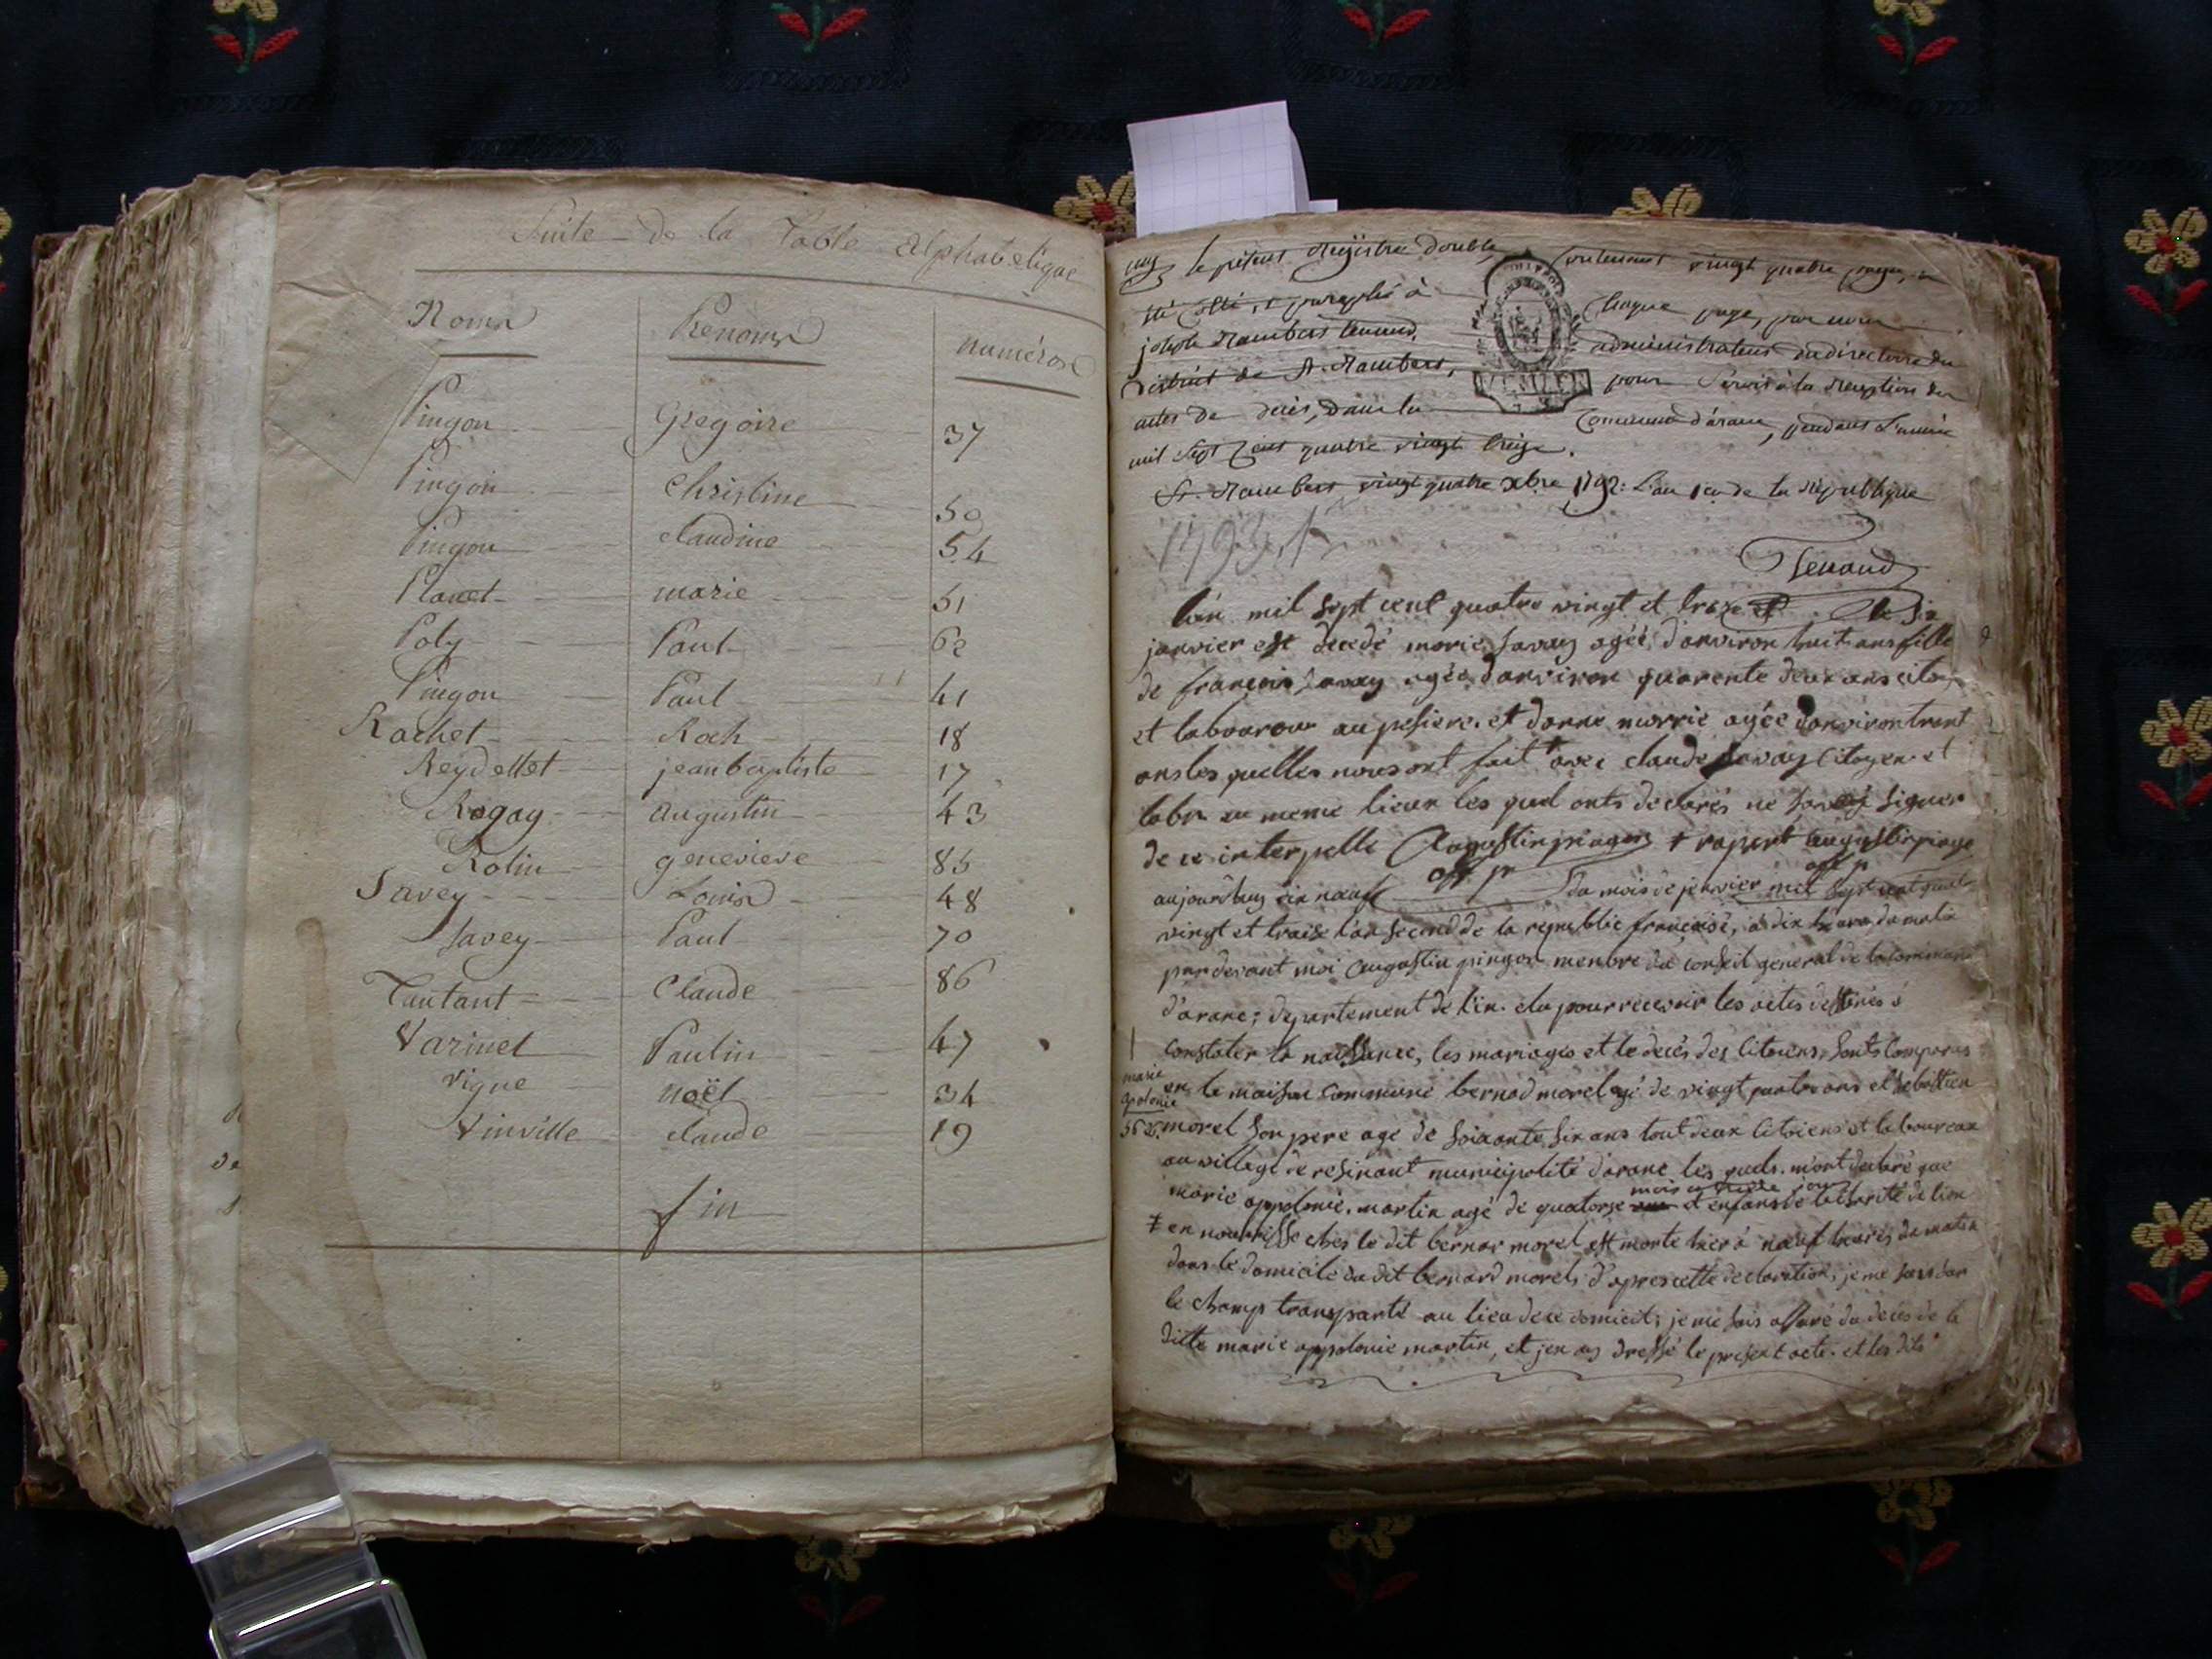 Suite de la Table alphabetique
Noms Prenoms numéros
Pingon Gregoire 37
Pingon Christine 50
Pingon claudine 54
Planet marie 51
Poly Paul 62
Pingon Paul 41
Rachet Roch 18
Reydellet jean baptiste 17
Rogay augustin 43
Rolin genevieve 85
Savey Louis 48
Savey Paul 70
Tantant Claude 86
Varinet Paulin 47
vigne noël 34
Vinville claude 19
fin
le présent Registre double, contenant vingt quatre pages, a
été cotté, et paraphé à chaque page, par nous
joseph Rambert tenand, administrateur du directoire du
District de St. Rambert, pour servir à la réception des
actes de décès, dans la Commune d'arane, pendant L'année
mil sept Cent quatre vingt treize.
St. Rambert vingt quatre xbre 1792: L'an 1er de la République
1793
Tenand
l'an mil sept cent quatre vingt et traze le six
janvier est decedé marie savay agée d'anviron huit ans fille
de françois savay agée d'anviron quarente deux ans
et laboureur et danne morrie agée d'anviron trant
ans les quelles nous ont fait avec claude savay Citoyen et
labr au meme lieux les quel onts declarés ne savoir signer
de ce interpelle Augustin pingon
off p off p
aujourdhuy dix neuf du mois de janvier mil sept cent quatre
vingt et traise l'an second de la republic française, à dix heure du matin
par devant moi augustin pingon menbre du conseil general de la commune
d'arane; departement de l'in. elu pour recevoir les actes destinés à
constater la naissance, les mariages et le decés des citoiens, sonts comparus
marie en la maison commune bernard morel agé de vingt quatre ans et sebastien
apolonie
morel son pere agé de soixante six ans tout deux citoiens et laboureur
au village de resinant municipolité d'arane les quels m'ont declaré que
mois jour
marie appolonie martin agé de quatorse et enfans de la charité de lion
en nourrisse ches le dit bernar morel est morte hier à neuf heures du matin
dans le domicile du dit bernard morel; d'apres cette declaration, je me suis sur
le champ transparté au lieu de ce domicil; je me suis assuré du decés de la
ditte marie appolonie martin, et jen ay dressé le present acte. et les dits